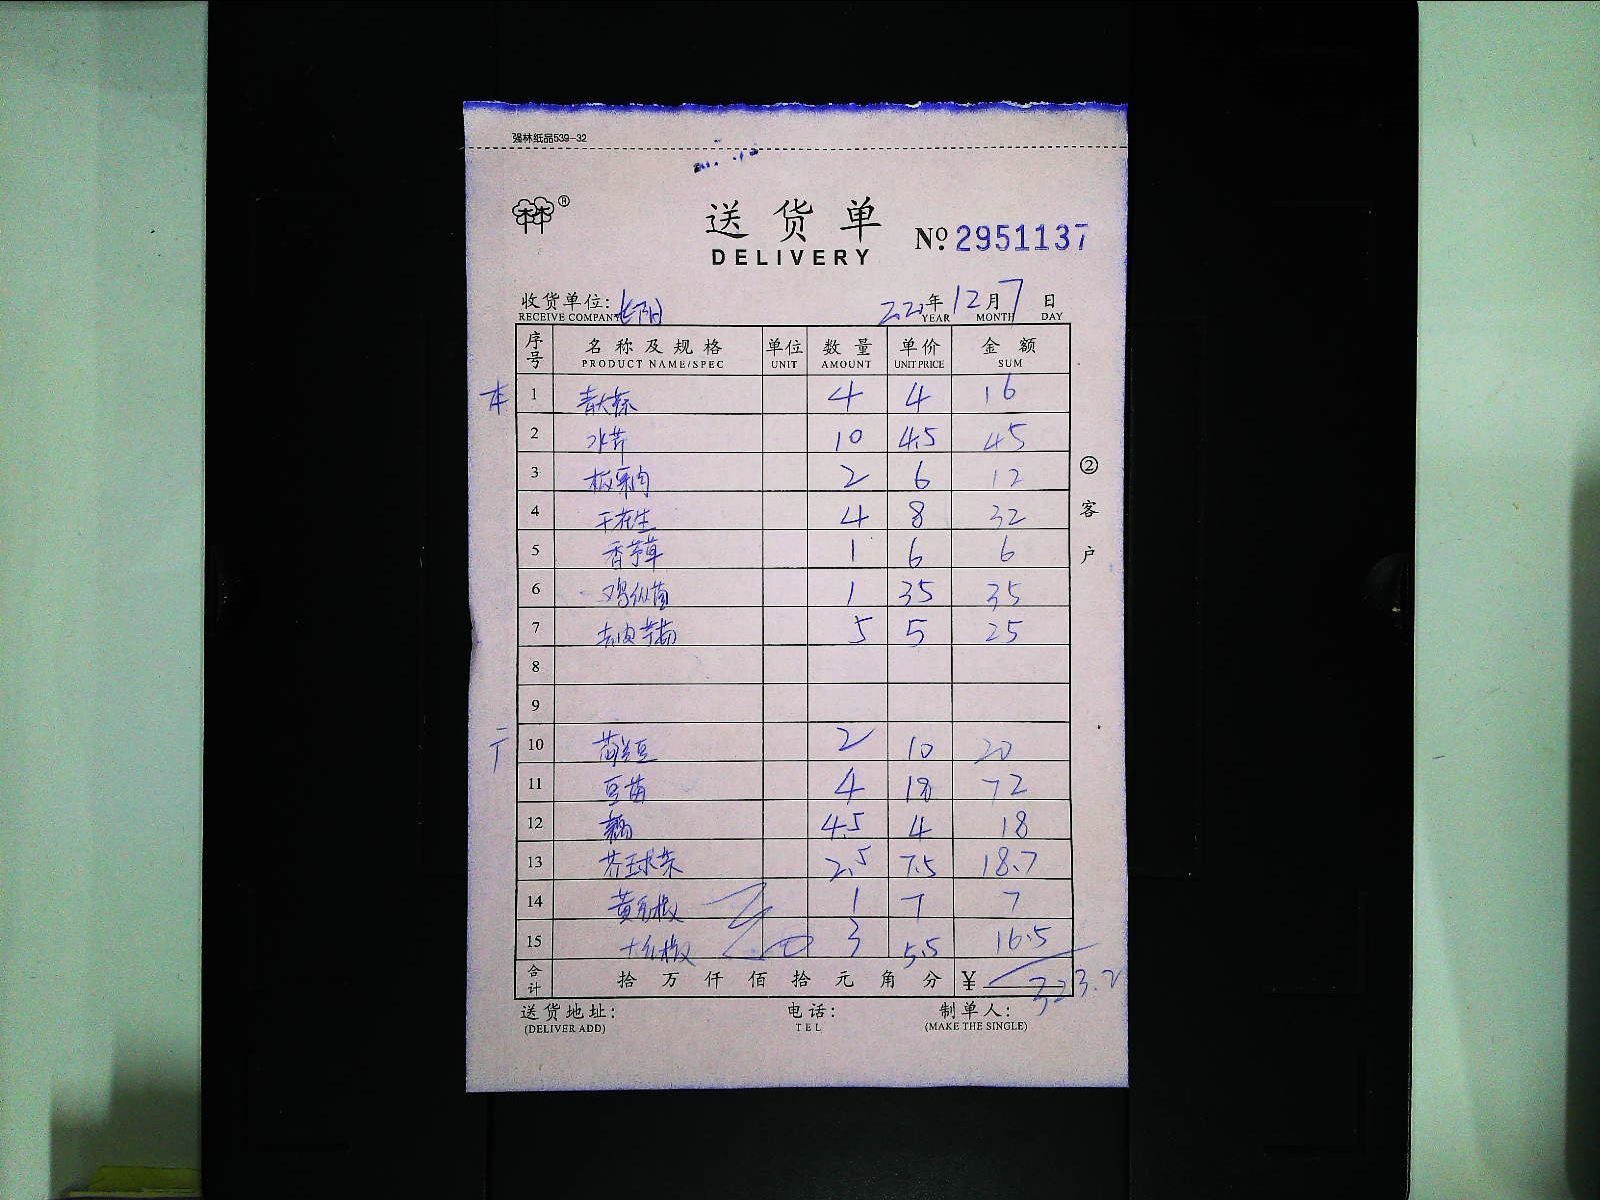 强林纸品539-32
林®
送货单
DELIVERY
No. 2951137
收货单位:
RECEIVE COMPANY
2020年12月7日
YEAR MONTH DAY
序号 名称及规格 单位 数量 单价 金额
PRODUCT NAME/SPEC UNIT AMOUNT UNIT PRICE SUM
本 1 4 4 16
2 水芹 10 4.5 45
3 板栗肉 2 6 12
4 干花生 4 8 32
5 香茅草 1 6 6
6 鸡枞菌 1 35 35
7 去皮芋艿 5 5 25
8
9
10 荷兰豆 2 10 20
11 豆苗 4 18 72
12 藕 4.5 4 18
13 芥王球菜 2.5 7.5 18.7
14 黄尖椒 1 7 7
15 大红椒 3 5.5 16.5
合计 拾万仟佰拾元角分 ¥ 323.2
送货地址: 电话: 制单人:
(DELIVER ADD) TEL (MAKE THE SINGLE)
②客户